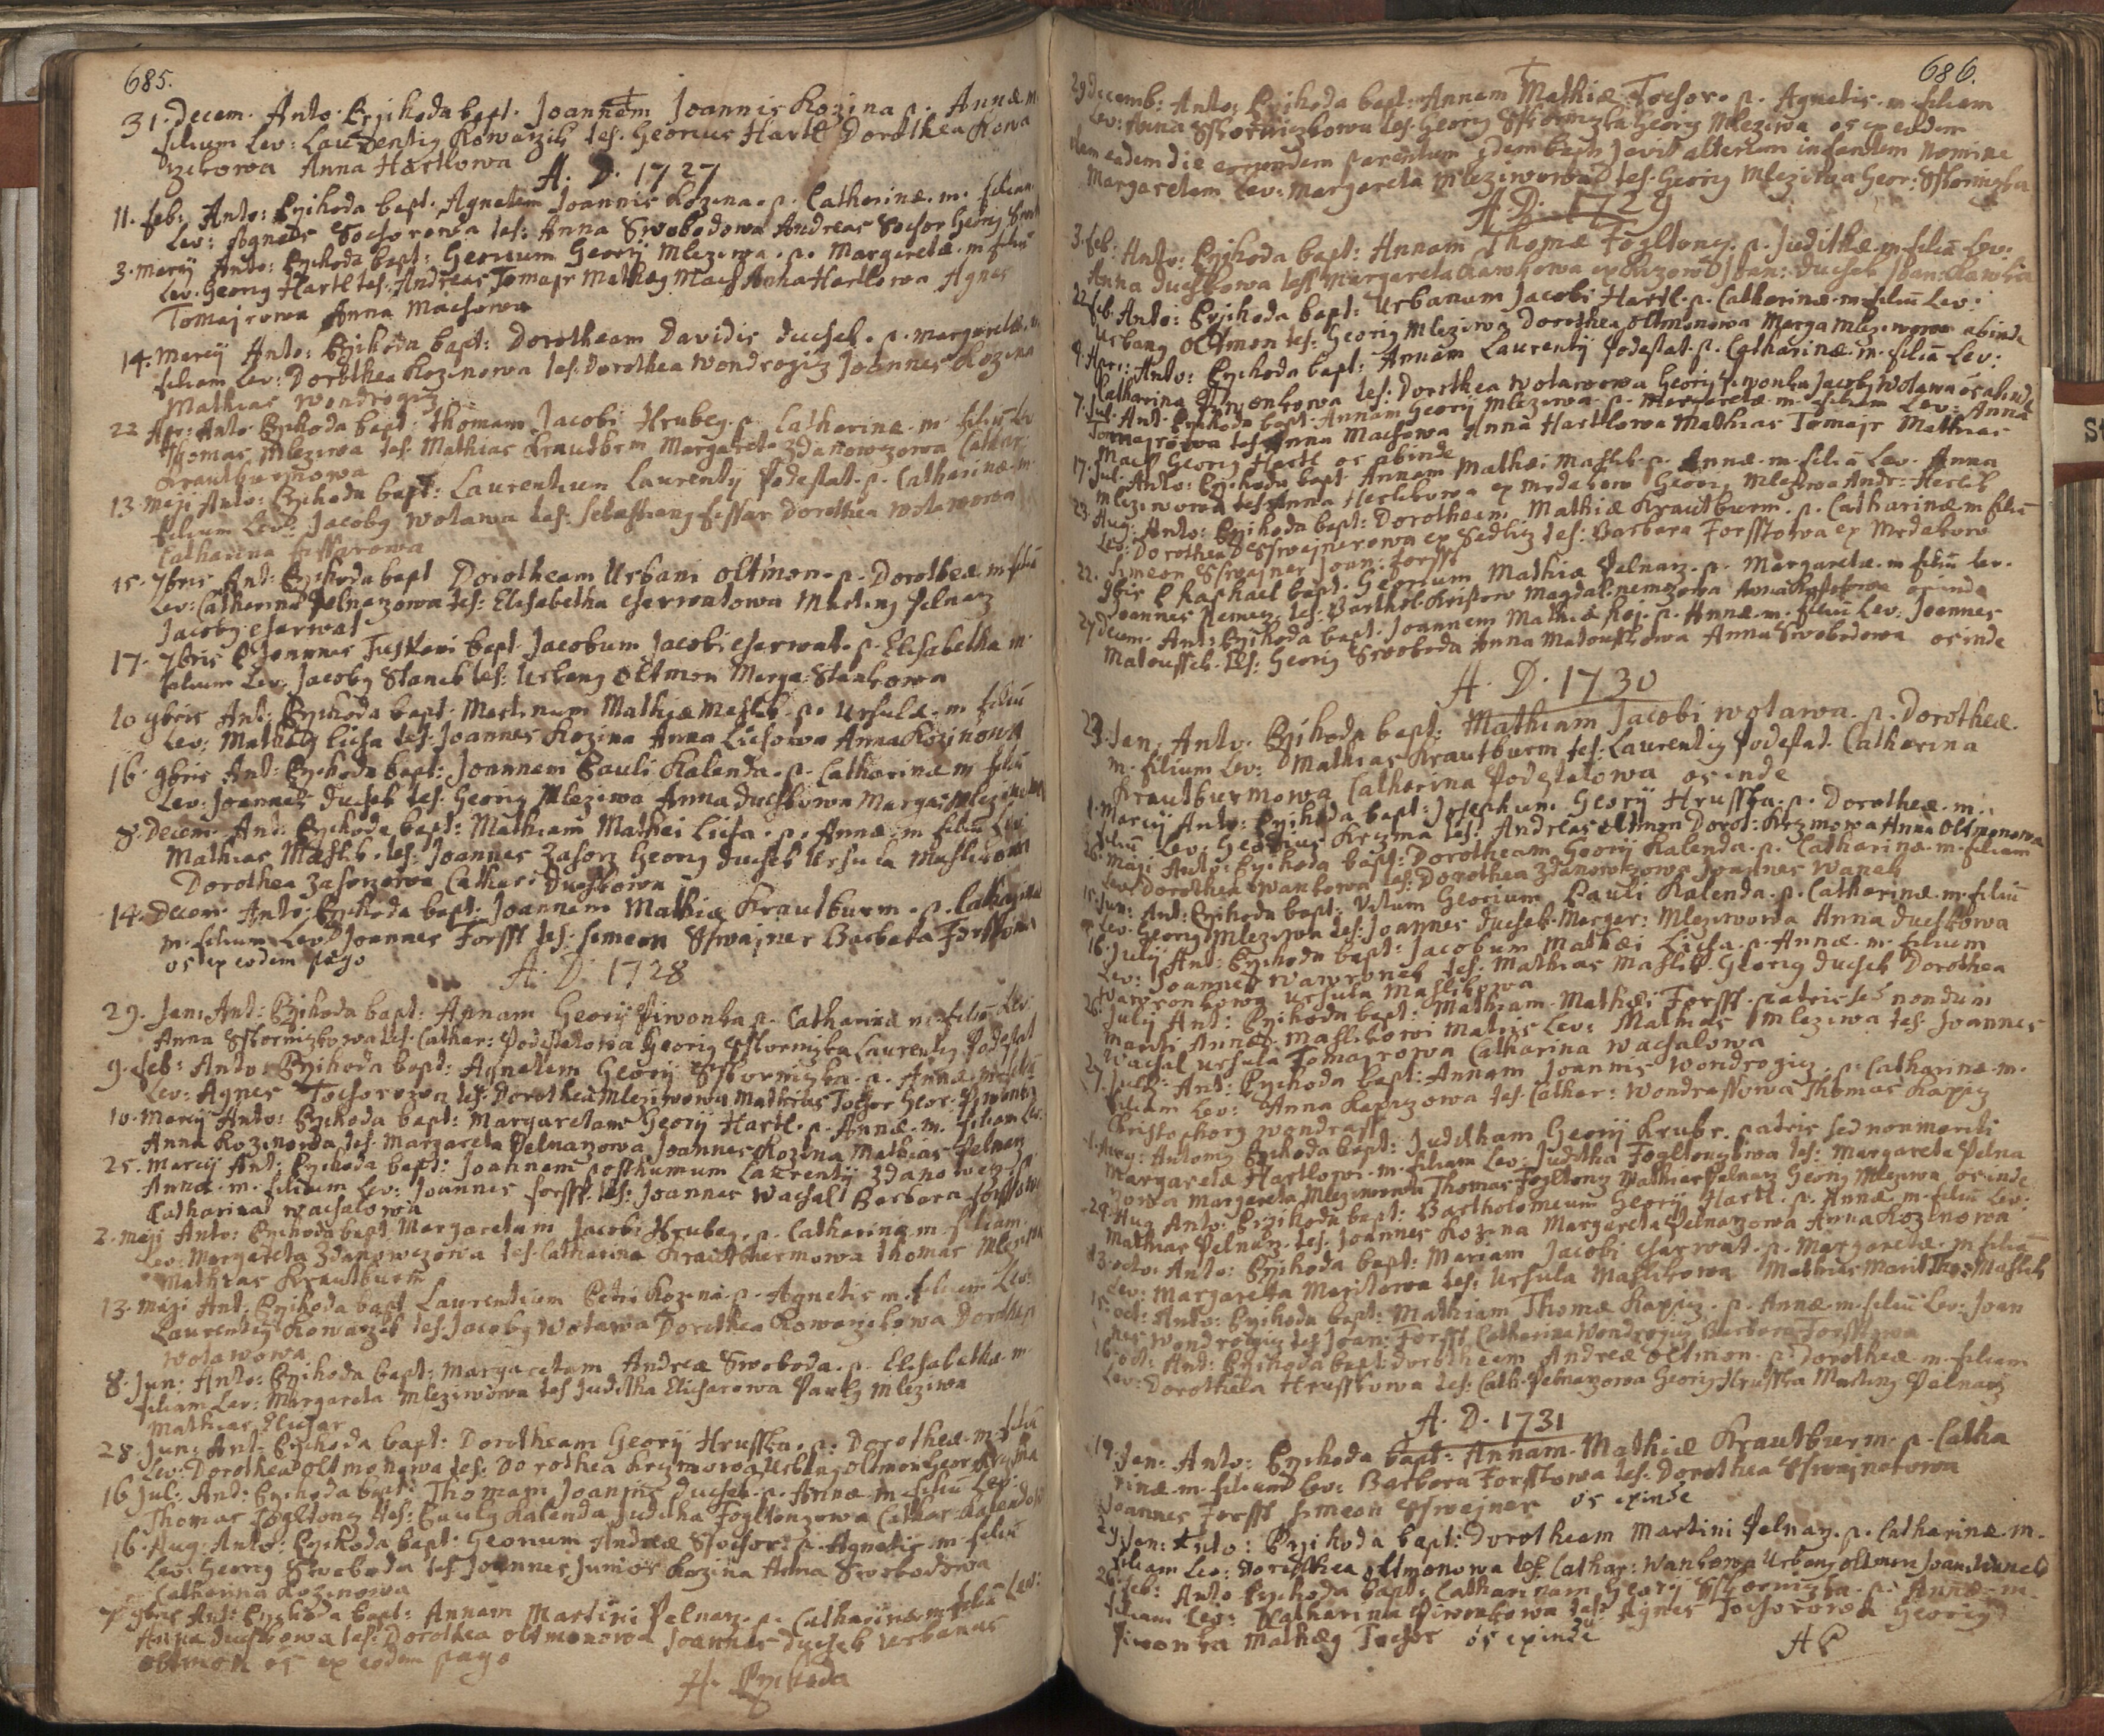 685.
31. Decem. Anto. Przihoda bapt. Joannem Joannis Kozina p. Annæ m
filium Lev: Laurentig Kowarzik tes. Georius Hartl Dorothea Kowa
rzikowa Anna Hartlowa
A. D. 1727
11. feb: Anto: Przihoda bapt. Agnetem Joannis Kozina. p. Catharinæ. m. filiam
Lev: Agnes Tochorowa tes: Anna Swobodowa Andreas Tochor Georig
3. Marcij Anto: Przihoda bapt: Georium Georij Mleziwa. p. Margaretæ. m filiū
Lev. Georig Hartl tes: Andreas Tomajr Matheg Mach Anna Hartlowa Agnes
Tomajrowa Anna Machowa
14. Marcij Anto: Przihoda bapt: Dorotheam Davidis Duchek. p. Margaretæ. m
filiam Lev: Dorothea Kozinowa tes: Dorothea Wondrogiz Joannes Kozina
Mathias Wondrogiz
22 Apr: Anto Przihoda bapt. Thomam Jacobi Hrubeg. p. Catharinæ. m. filiū Lev
Thomas Mleziwa tes: Mathias Krautburm Margareta Zdanowczowa Cathar:
Krautburmowa
13. Maji Anto: Przihoda bapt: Laurentium Laurentij Podestat. p. Catharinæ. m
filium Lev: Jacobg Wotawa tes: Sebastiang fissar Dorothea Wotawowa
Catharina fissarowa
15. 7bris Ant: Przihoda bapt Dorotheam Urbani Oltmon. p. Dorotheæ m filiā
Lev: Catharina Pelnarzowa tes: Elisabetha Charwatowa Marting Pelnarz
Jacobg Charwat
17. 7bris P Joannes Tuskani bapt. Jacobum Jacobi Charwat. p. Elisabetha m
filium Lev: Jacobg Stanek tes: Urbang Oltmon Marga: Stankowa
10 9bris Ant: Przihoda bapt. Martinum Mathiæ Maslik. p. Ursulæ. m filiū
Lev: Matheg Licha tes: Joannes Kozina Anna Lichowa Anna Kozinowa
16. 9bris Ant: Przihoda bapt: Joannem Pauli Kalenda. p. Catharinæ m filiū
Lev: Joannes Duchek tes: Georig Mleziwa Anna Duchkowa Margar: Mleziwowa
8. Decem. Ant: Przihoda bapt: Mathiam Mathei Licha. p. Annæ. m filiū Lev
Mathias Maslik. tes: Joannes Zahorz Georig Duchek Ursula Maslikowa
Dorothea Zahorzowa Cathari Duchkowa
14. Decem. Anto: Przihoda bapt. Joannem Mathiæ Krautburm. p. Catharinæ
m. filium Lev: Joannes Forsst tes. Simeon Sswajner Barbara Forsstowa
os ex eodem pago
A. D. 1728
29. Jan: Ant: Przihoda bapt: Annam Georij Piwonka p. Catharinæ m. filiā Lev:
Anna Sskornizkowa tes. Cathar: Podestatowa Georig Sskornizka Laurentig Podestat
9. feb: Anto: Przihoda bapt: Agnetem Georij Sskornizka. p. Annæ. m filiā
Lev: Agnes Tochorowa tes: Dorothea Mleziwowa Mathias Tochor Geor. Piwonka
10. Marcij Anto: Przihoda bapt: Margaretam Georij Hartl. p. Annæ. m. filiam Lev:
Anna Kozinowa tes: Margareta Pelnarzowa Joannes Kozina Mathias Pelnarz
25. Marcij Ant: Przihoda bapt: Joannem posthumum Laurentij Zdanowcz. p.
Annæ. m. filium Lev: Joannes Forsst. tes: Joannes Wachal Barbara Forsstowa
Catharina Wachalowa
2. Maji Anto: Przihoda bapt: Margaretam Jacobi Hrubeg. p. Catharinæ m. filiam
Lev: Margareta Zdanowczowa tes Catharina Krautburmowa Thomas Mleziwa
Mathias Krautburm
13. Maji Ant: Przihoda bapt Laurentium Petri Kozina. p. Agnetis m. filium Lev:
Laurentig Kowarzik tes. Jacobg Wotawa Dorothea Kowarzikowa Dorothea
Wotawowa
8. Jun: Anto: Przihoda bapt: Margaretam Andreæ Swoboda. p. Elisabethæ. m.
filiam Lev: Margareta Mleziwowa tes Juditha Elicharowa Paulg Mleziwa
Mathias Elichar
28. Jun: Ant: Przihoda bapt: Dorotheam Georij Hrusska. p. Dorotheæ. m. filiā
Lev: Dorothea Oltmonowa tes: Dorothea Krizmowa Urbang Oltmon Georg Krizma
16 Jul: Ant: Przihoda bapt: Thomam Joannis Duchek. p. Annæ m filiū Lev:
Thomas Fogltong tes: Paulg Kalenda Juditha Fogltongowa Cathar: Kalendowa
16. Aug: Anto: Przihoda bapt: Georium Andreæ Tochor. p. Agnetis. m. filiū
Lev: Georig Swoboda tes Joannes Junior Kozina Anna Swobodowa
Catharina Kozinowa
7 9bris Ant: Przihoda bapt: Annam Martini Pelnarz. p. Catharinæ m filiā Lev:
Anna Duchkowa tes: Dorothea Oltmonowa Joannes Duchek Urbanus
Oltmon os ex eodem pago
A. Przihoda
686.
29 Decemb: Anto: Przihoda bapt: Annam Mathiæ Tochor. p. Agnetis. m. filiam
Lev: Anna Sskornizkowa tes. Georg Sskornizka Georig Mleziwa os ex eodem
Item eadem die eorundem parentum idem baptizavit alteram infantem nomine
Margaretam Lev: Margareta Mleziwowa tes. Georig Mleziwa Geor: Sskornizka
A D. 1729
3. feb: Anto: Przihoda bapt: Annam Thomæ Fogltong. p. Judithæ. m. filiā Lev:
Anna Duchkowa tess Margareta Kawkowa ex Joan: Duchek Joan: Kawka
22 feb. Anto: Przihoda bapt: Urbanum Jacobi Hartl. p. Catharinæ. m. filiū Lev:
Urbang Oltmon tes: Georig Mleziwa Dorothea Oltmonowa Marga Mleziwowa abinde
9. Apr: Anto: Przihoda bapt: Annam Laurentij Podestat. p. Catharinæ. m. filiā Lev:
Catharina Piwonkowa tes: Dorothea Wotawowa Georig Piwonka Jacobg Wotawa os abinde
7. Jul. Ant. Przihoda bapt. Annam Georij Mleziwa. p. Margaretæ. m. filiam Lev: Anna
Tomajrowa tes Anna Machowa Anna Hartlowa Mathias Tomajr Mathias
Mach Georig Hartl os abinde
17. Jul. Anto: Przihoda bapt Annam Mathæi Maslik. p. Annæ. m. filiā Lev. Anna
Mleziwowa tes Anna Herlikowa ex Mrdakow Georig Mleziwa Andr: Herlik
23. Aug: Anto: Przihoda bapt: Dorotheam Mathiæ Krautburm. p. Catharinæ m filiā
Lev: Dorothea Sswajnerowa ex Sedliz tes: Barbara Forsstowa ex Mrdakow
Simeon Sswajner Joan: Forsst
22. 9bris P Raphael bapt. Georium Mathiæ Pelnarz. p. Margaretæ. m filiū Lev.
Joannes Nemez tes: Barthol. Kristow Magdal: Nemzowa os inde
27 Decem. Ant: Przihoda bapt. Joannem Mathiæ Rej. p. Annæ. m. filiū Lev: Joannes
Matoussek. tes: Georig Swoboda Anna Matousskowa Anna Swobodowa os inde
A. D. 1730
23. Jan. Anto: Przihoda bapt: Mathiam Jacobi Wotawa. p. Dorotheæ.
m. filium Lev: Mathias Krautburm tes: Laurentig Podestat Catharina
Krautburmowa Catharina Podestatowa os inde
1. Marcij Anto: Przihoda bapt: Josephum Georij Hrusska. p. Dorotheæ. m.
filiū Lev: Georius Krizma tes: Andreas Oltmon Dorot: Krizmowa Anna Oltmonowa
26. Maji Anto: Przihoda bapt: Dorotheam Georij Kalenda. p. Catharinæ. m. filiam
Lev: Dorothea Wankowa tes: Dorothea Zdanowczowa Joannes Wanek
15. Jun: Ant: Przihoda bapt: Vitum Georium Pauli Kalenda. p. Catharinæ. m. filiū
Lev: Georig Mleziwa tes: Joannes Duchek Marger: Mleziwowa Anna Duchkowa
16. July Ant: Przihoda bapt: Jacobum Mathæi Licha. p. Annæ. m. filium
Lev: Joannes Wawronek tes: Mathias Maslik Georig Duchek Dorothea
Wawronkowa Ursula Maslikowa
26. July Ant: Przihoda bapt: Mathiam Mathæi Forsst. patris sed nondum
mariti Annæ Maslikowi matris Lev: Mathias Mleziwa tes. Joannes
Wachal Ursula Tomajrowa Catharina Wachalowa
27. July: Ant: Przihoda bapt: Annam Joannis Wondrogiz. p. Catharinæ. m.
filiam Lev: Anna Kapizowa tes. Cathar: Wondrassowa Thomas Kapiz
Christophorg Wondrass
1. Aug: Antong Przihoda bapt: Juditham Georij Krubr. patris sed non mariti
Margaretæ Hartlowi. m. filiam Lev: Juditha Fogltongowa tes: Margareta Pelna
rzowa Margareta Mleziwowa Thomas Fogltong Mathias Pelnarz Georig Mleziwa os inde
24. Aug Anto: Przihoda bapt: Bartholomeum Georij Hartl. p. Annæ. m. filiū Lev:
Mathias Pelnarz. tes: Joannes Kozina Margareta Pelnarzowa Anna Kozinowa
13. octo: Anto: Przihoda bapt: Mariam Jacobi Charwat. p. Margaretæ. m filiā
Lev: Margareta Maritowa tes: Ursula Maslikowa Mathias Marit Thos: Maslik
15. oct: Anto: Przihoda bapt: Mathiam Thomæ Kapiz. p. Annæ. m. filiū Lev: Joan
nes Wondrogiz tes Joan: Forsst Catharina Wondrogiz Barbara Forsstowa
16. oct: Ant: Przihoda bapt: Dorotheam Andreæ Oltmon. p. Dorotheæ. m. filiam
Lev: Dorothea Hrusskowa tes: Cath: Pelnarzowa Georig Hrusska Marting Pelnarz
A. D. 1731
19. Jan: Anto: Przihoda bapt: Annam. Mathiæ Krautburm. p. Catha
rinæ. m. filiam Lev: Barbora Forsstowa tes: Dorothea Sswajnerowa
Joannes Forsst Simeon Sswejner os exinde
29. Jan: Anto: Przihoda bapt: Dorotheam Martini Pelnarz. p. Catharinæ. m.
filiam Lev: Dorothea Oltmonowa tes: Cathar: Wankowa Urbang Oltmon Joan: Wanek
26 feb: Anto Przihoda bapt: Catharinam Georij Sskornizka. p. Annæ. m.
filiam Lev: Katharina Piwonkowa tes: Agnes Tochorowa Georig
Piwonka Matheg Tochor os exinde
A P